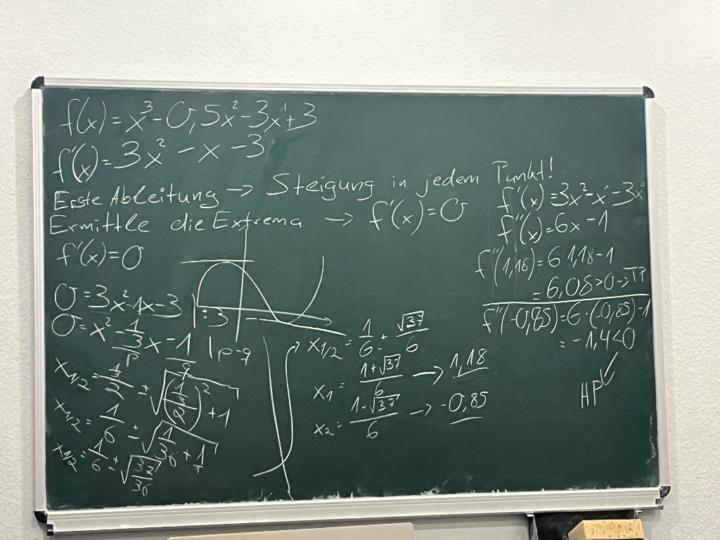 f(x) = x³ - 0,5x² - 3x¹ + 3
f'(x) = 3x² - x - 3
Erste Ableitung → Steigung in jedem Punkt!
Ermittle die Extrema → f'(x) = 0
f'(x) = 0
0 = 3x² - 1x - 3 | :3
0 = x² - 1/3 x - 1 | p-q
p q
x₁/₂ = 1/3/2 ± √((1/3/2)² + 1
x₁/₂ = 1/6 ± √(1/36 + 1
x₁/₂ = 1/6 ± √(37/36)
x₁/₂ = 1/6 ± √37/6
x₁ = 1+√37/6 → 1,18
x₂ = 1-√37/6 → -0,85
f'(x) = 3x² - x¹ - 3x⁰
f''(x) = 6x - 1
f''(1,18) = 6·1,18 - 1
= 6,08 > 0 → TP
f''(-0,85) = 6·(-0,85) - 1
= -1,4 < 0
HP